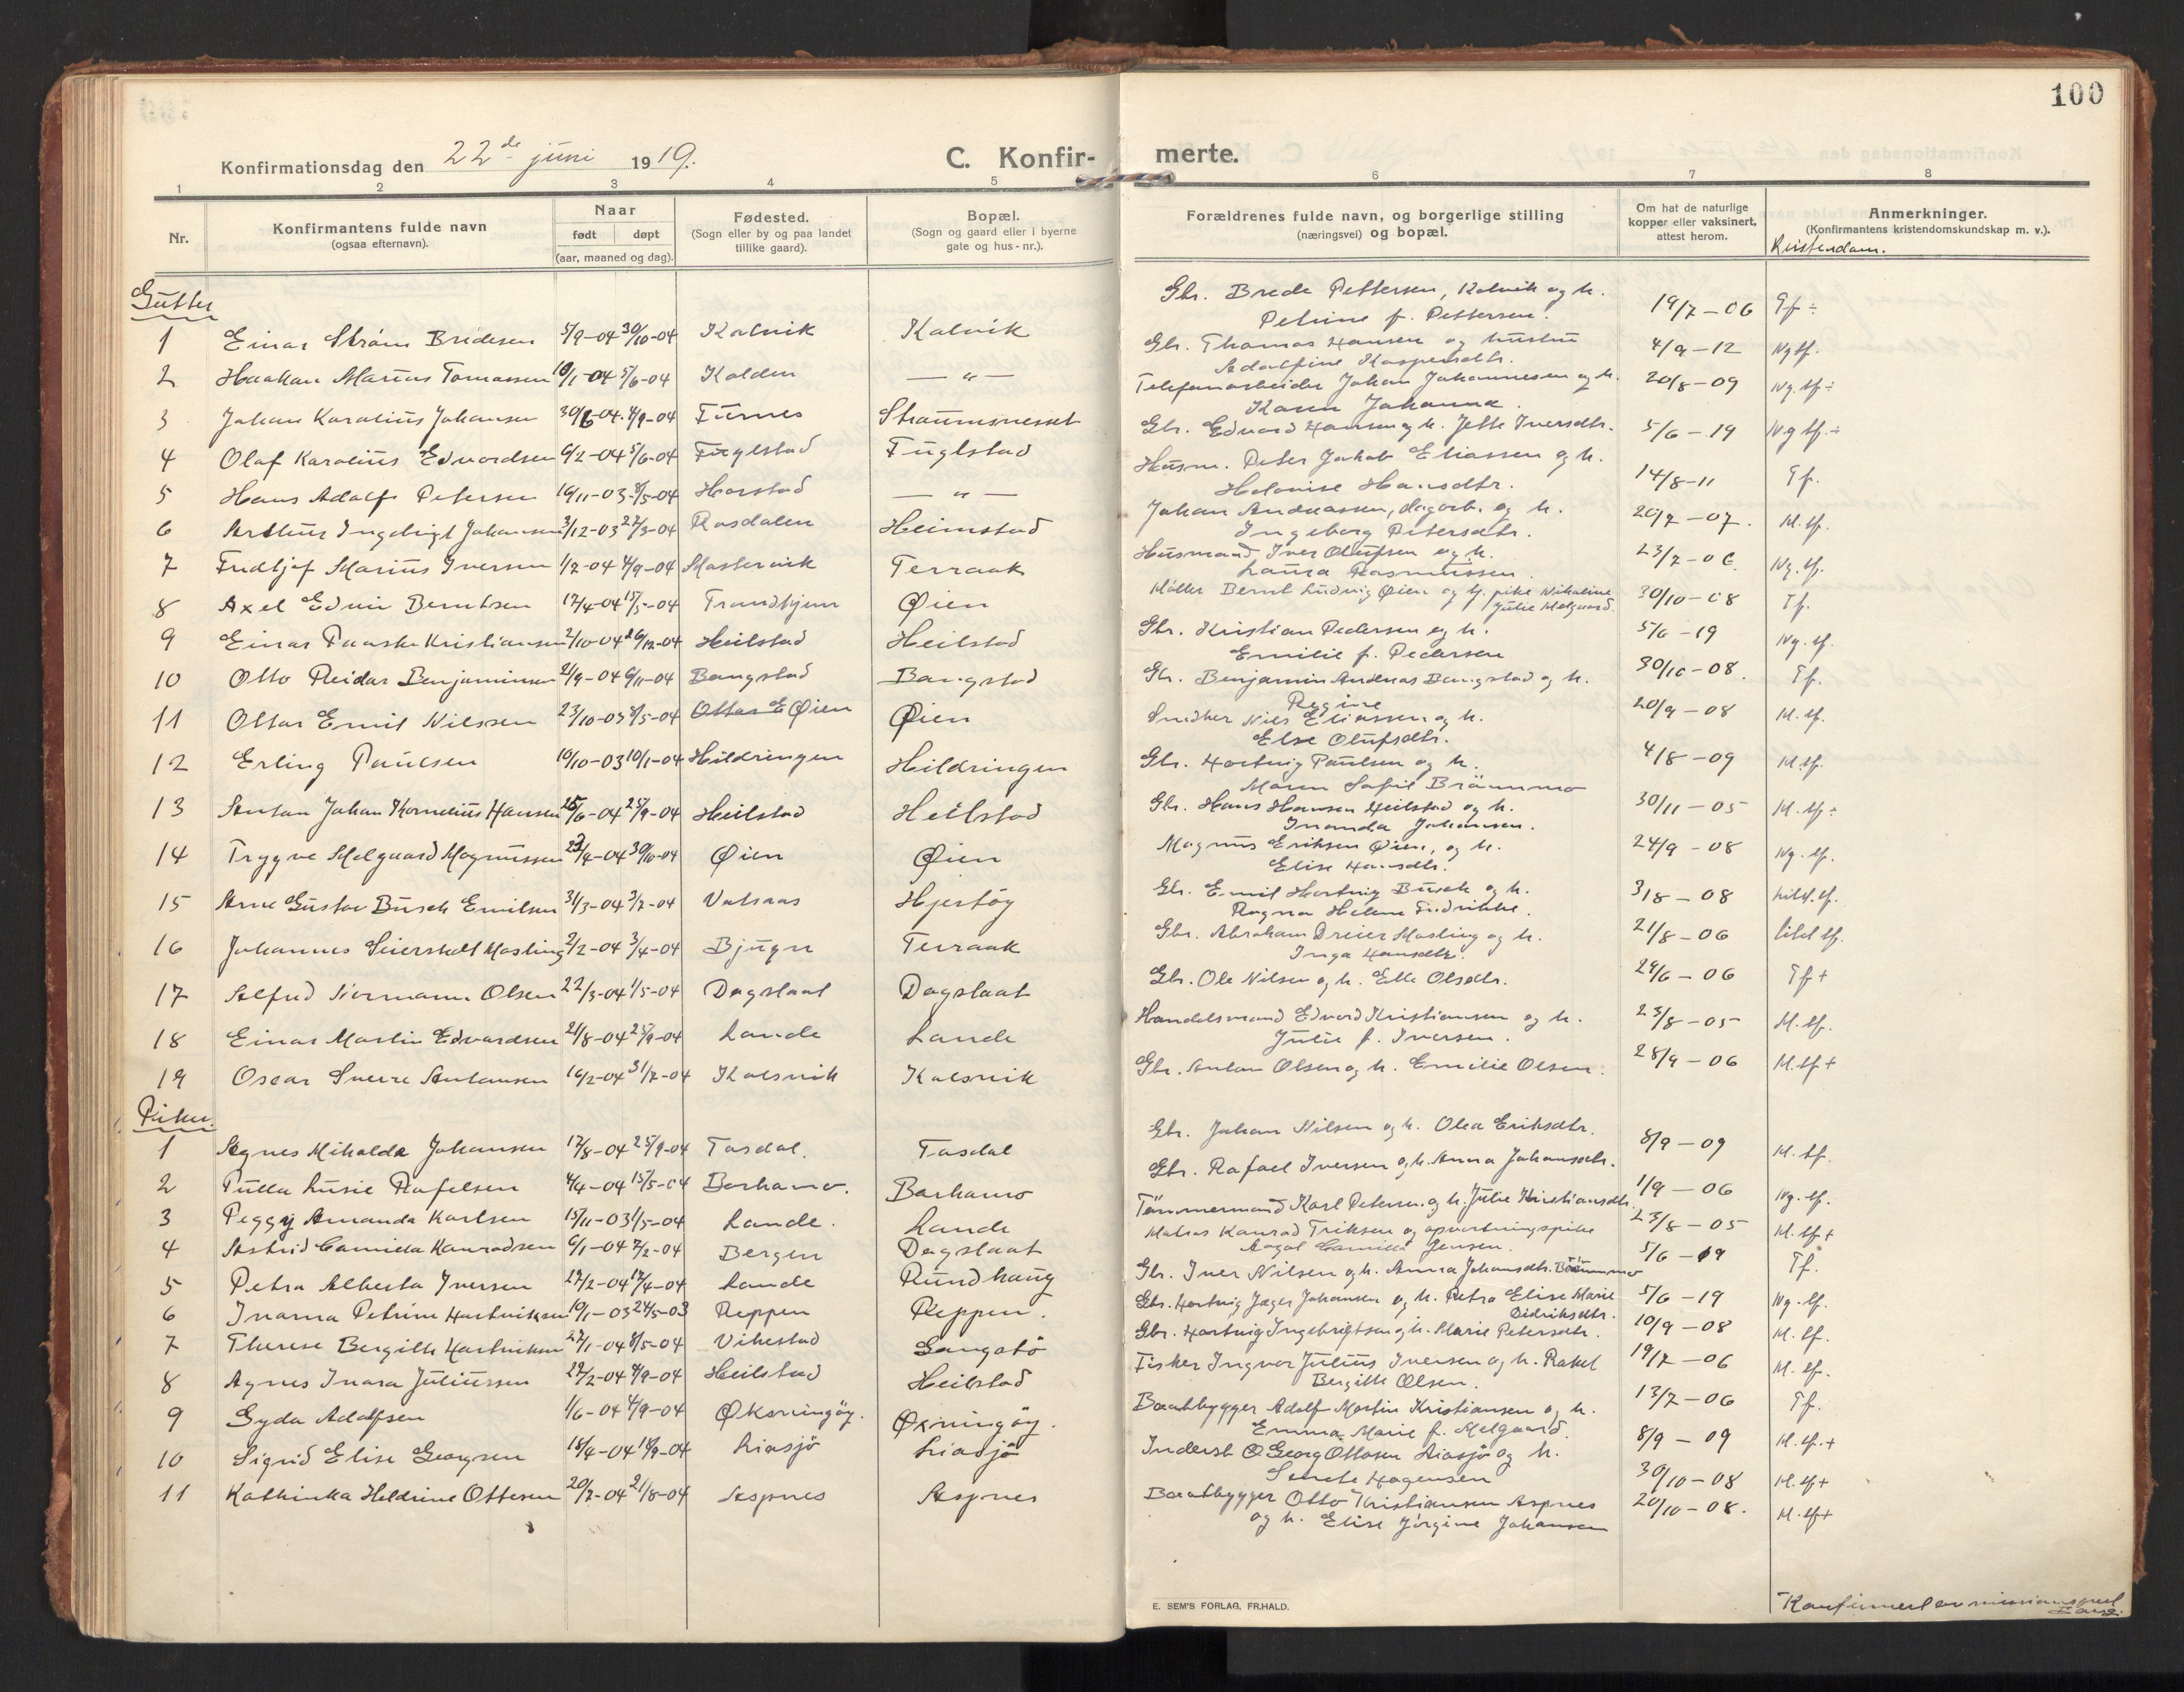 100
Konfirmationsdag den 22de juni 1919.
C. Konfir- merte.
1 2 3 4 5 6 7 8
Nr.
Konfirmantens fulde navn
(ogsaa efternavn).
Naar
født døpt
(aar, maaned og dag).
Fødested.
(Sogn eller by og paa landet
tillike gaard).
Bopæl.
(Sogn og gaard eller i byerne
gate og hus-nr.).
Forældrenes fulde navn, og borgerlige stilling
(næringsvei) og bopæl.
Om hat de naturlige
kopper eller vaksinert,
attest herom.
Anmerkninger.
(Konfirmantens kristendomskundskap m. v.).
Kristendom.
Gutter
1 Einar Strøm Bredesen 5/9-04 30/10-04 Kalvik Kalvik Gbr. Brede Pettersen, Kalvik og h. 19/7-06 Tf ÷
Petrine f. Pettersen.
2 Haakon Marius Tomassen 10/1-04 5/6-04 Kolden — " — Gbr. Thomas Hansen og hustru 4/9-12 Ng tf.
Adolfine Kaspersdtr.
3 Johan Karolius Johansen 30/6-04 4/9-04 Furnes Straumsnesset Telefonarbeider Johan Johannesen og h. 20/8-09 Ng. tf ÷
Karen Johanna.
4 Olaf Karolius Edvardsen 6/2-04 5/6-04 Fuglstad Fuglstad Gbr. Edvard Hansen og h. Jette Iversdtr. 5/6-19 Ng tf. ÷
5 Hans Adolf Petersen 16/11-03 8/5-04 Horstad — " — Husm. Peter Jakob Eliassen og h. 14/8-11 Tf.
Helovise Hansdtr.
6 Arthur Ingebrigt Johansen 3/12-03 27/3-04 Rosdalen Heimstad Johan Andreassen, dagarb. og h. 20/7-07. M. tf.
Ingeborg Petersdtr.
7 Fridtjof Marius Iversen 1/7-04 4/9-04 Mastervik Terraak Husmand Iver Olufsen og h. 23/7-06 Ng. tf.
Laura Rasmussen.
8 Axel Edvin Berntsen 17/4-04 15/5-04 Trondhjem Øien Møller Bernt Ludvig Øien og tj. pike Nikoline 30/10-08 Tf.
Julie Melgaard.
9 Einar Paaske Kristiansen 2/10-04 26/12-04 Heilstad Heilstad Gbr. Kristian Pedersen og h. 5/6-19 Ng. tf.
Emilie f. Pedersen
10 Otto Reidar Benjaminsen 2/9-04 6/11-04 Bangstad Bangstad Gbr. Benjamin Andreas Bangstad og h. 30/10-08. Tf.
Regine
11 Ottar Emil Nilssen 23/10-03 8/5-04 Ottar E Øien Øien Snedker Nils Eliassen og h. 20/9-08 M. tf.
Else Olufsdtr.
12 Erling Paulsen 10/10-03 10/1-04 Hildringen Hildringen Gbr. Hartvig Paulsen og h. 4/8-09 M. tf.
Maren Sofie Brämmo
13 Anton Johan Kornelius Hansen 25/6-04 25/9-04 Heilstad Heilstad Gbr. Hans Hansen Heilstad og h. 30/11-05 M. tf ÷
Inanda Johansen.
14 Trygve Melgaard Magnussen 23/4-04 30/10-04 Øien Øien Magnus Eriksen Øien, og h. 24/9-08 Ng. tf.
Elise Hansdtr.
15 Arne Gustav Busch Emilsen 31/3-04 3/7-04 Valsaas Hjertøy Gbr. Emil Hartvig Busch og h. 3/8-08
Ragna Helene Fredrikke.
16 Johannes Seierstedt Mosling 2/2-04 3/4-04 Bjugn Terraak Gbr. Abraham Dreier Mosling og h. 21/8-06
Inga Hansdtr.
17 Alfred Normann Olsen 22/3-04 1/5-04 Dagslaat Dagslaat Gbr. Ole Nilsen og h. Elle Olsdtr. 29/6-06 Tf +
18 Einar Martin Edvardsen 21/8-04 25/9-04 Lande Lande Handelsmand Edvard Kristiansen og h. 23/8-05 M. tf.
Julie f. Iversen.
19 Oscar Sverre Antonsen 16/2-04 31/7-04 Kalsvik Kalsvik Gbr. Anton Olsen og h. Emilie Olsen. 28/9-06 M. tf +
Piker.
1 Agnes Mikalda Johansen 17/8-04 25/9-04 Tosdal. Tosdal Gbr. Johan Nilsen og h. Olea Eriksdtr. 8/9-09 M. tf.
2 Pulla Lusie Rafelsen 4/4-04 15/5-04 Barhamo. Barhamo Gbr. Rafael Iversen og h. Anna Johansdtr. 1/9-06 Ng. tf.
3 Peggy Amanda Karlsen 15/11-03 1/5-04 Lande. Lande Tømmermand Karl Petersen og h. Julie Kristiansdtr. 23/8-05 M. tf +
4 Astrid Camilla Konradsen 6/1-04 7/2-04 Bergen Dagslaat Matros Konrad Eriksen og opvartningspike 5/6-19 Tf.
Aagot Camilla Jensen.
5 Petra Alberta Iversen 27/2-04 17/4-04 Lande Rundhaug Gbr. Iver Nilsen og h. Anna Johansdtr. Brämmo
6 Inarna Petrine Hartviksen 10/1-03 24/5-03 Reppen Reppen. Gbr. Hartvig Jæger Johansen og h. Petra Elise Marie 5/6-19 Ng. tf.
Didriksdtr.
7 Therese Bergitte Hartviksen 27/1-04 8/5-04 Vikestad Gangstø Gbr. Hartvig Ingebrigtsen og h. Marie Petersdtr. 10/9-08 M. tf.
8 Agnes Inara Juliussen 27/2-04 4/9-04 Heilstad Heilstad Fisker Ingvar Julius Iversen og h. Rakel 19/7-06 M. tf.
Bergitte Olsen.
9 Gyda Adolfsen 1/6-04 4/9-04 Øksningøy. Øxningøy. Baatbygger Adolf Martin Kristiansen og h. 13/7-06 Tf.
Emma Marie f. Melgaard.
10 Sigrid Elise Georgsen 15/4-04 18/9-04 Liasjø Liasjø Inderst O. Georg Ottosen Liasjø og h. 8/9-09 M. tf. +
Hagensen 30/10-08 M. tf +
11 Kathinka Heldrine Ottesen 20/7-04 21/8-04 Aspnes Aspnes Baatbygger Otto Kristiansen Aspnes 20/10-08. M. tf +
og h. Elise Jørgine Johansen
E. SEM'S FORLAG, FR.HALD.
Konfirmert av